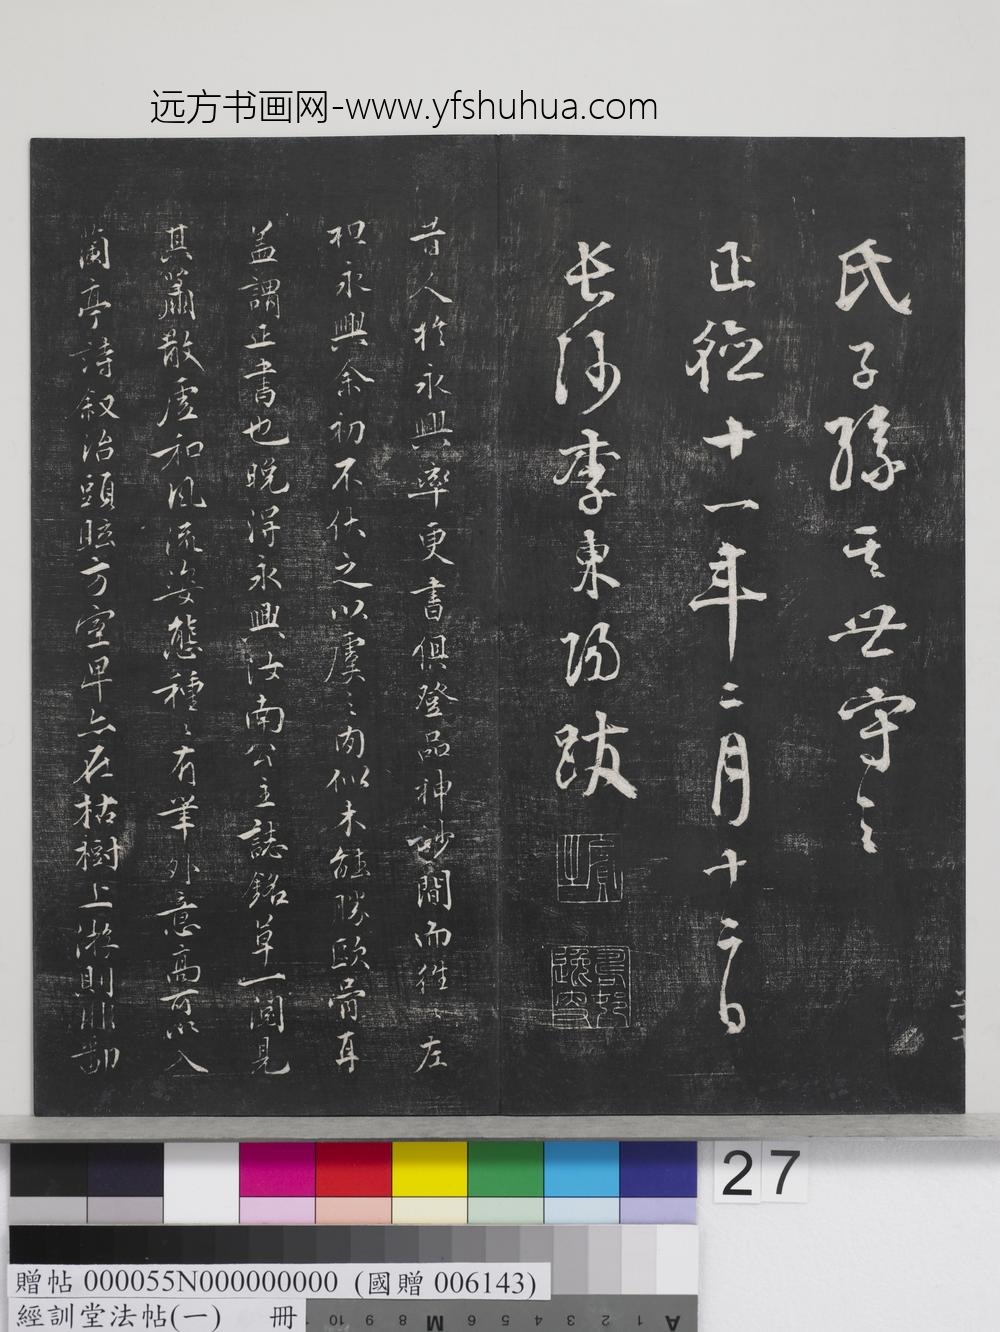 远方书画网-www.yfshuhua.com
氏子孫其世守之
正德十一年二月十二日
長沙李東陽跋
昔人於永興率更書俱登品神妙間而往〻左
袒永興余初不伏之以虞〻肉似未能勝歐骨耳
蓋謂正書也晚得永興汝南公主誌銘草一閱見
其蕭散虛和風流姿態種〻有筆外意高可以入
蘭亭詩叙治頭眩方室卑亦在枯樹上游則非鄙
27
贈帖 000055N000000000 (國贈 006143)
經訓堂法帖(一) 冊